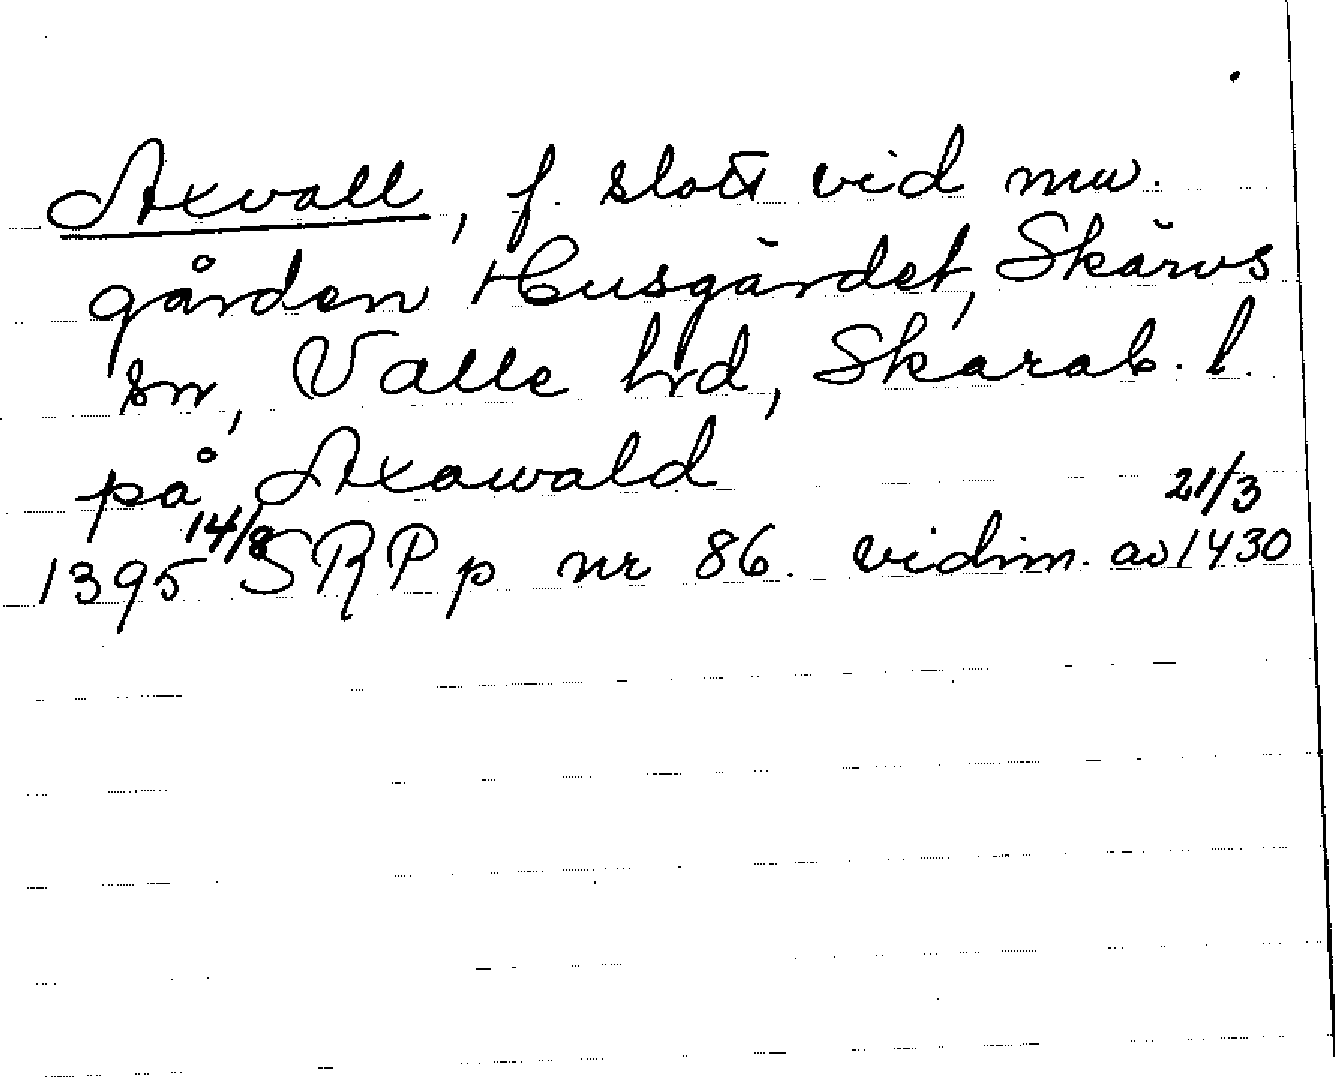 Axvall, f. slott vid nuv.
gården Husgärdet, Skärvs
sn, Valle hrd, Skarab. l.
på Axawald 21/3
1395 14/8 SRPp nr 86. vidim. av 1430